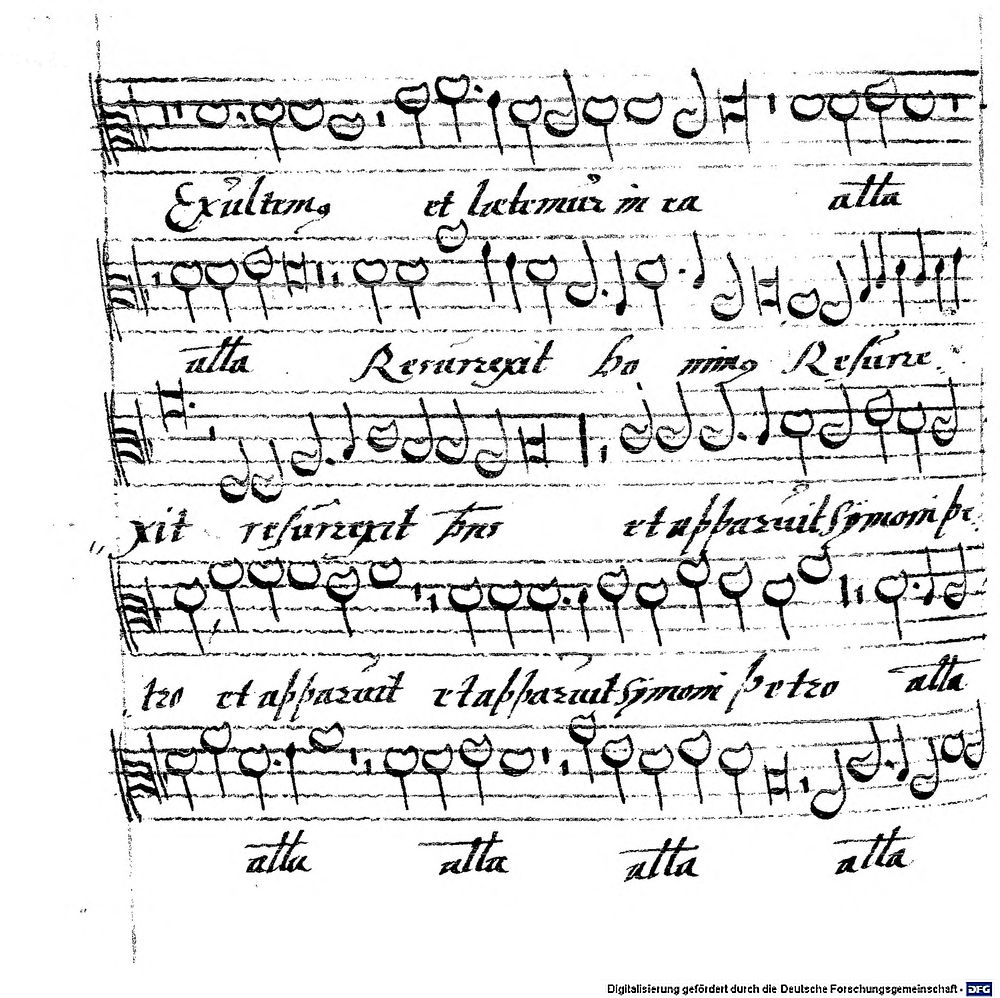 Exultemꝰ et lætemur in ea alla
alla Resurrexit Do minꝰ Resurre
xit resurrexit dns et apparuit Symoni pe
tro et apparuit et apparuit Symoni petro alla
alla alla alla alla
Digitalisierung gefördert durch die Deutsche Forschungsgemeinschaft - DFG